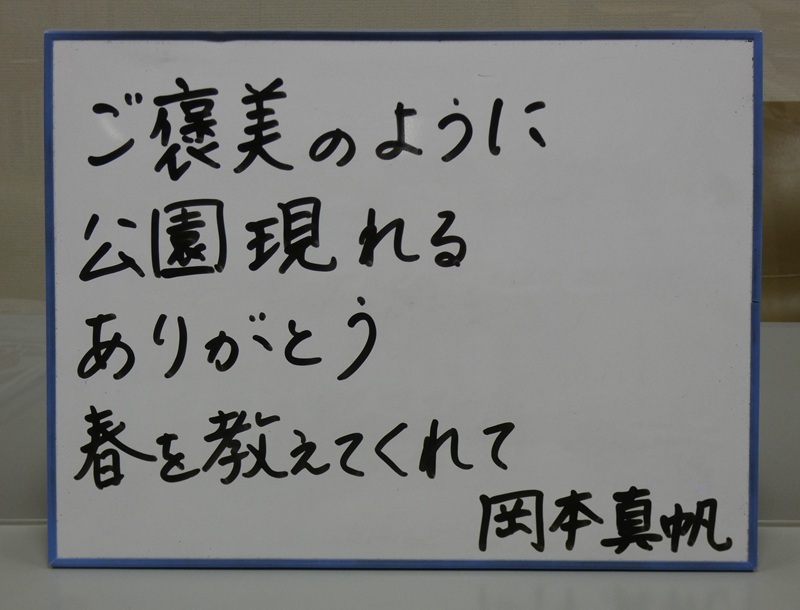 ご褒美のように
公園現れる
ありがとう
春を教えてくれて
岡本真帆